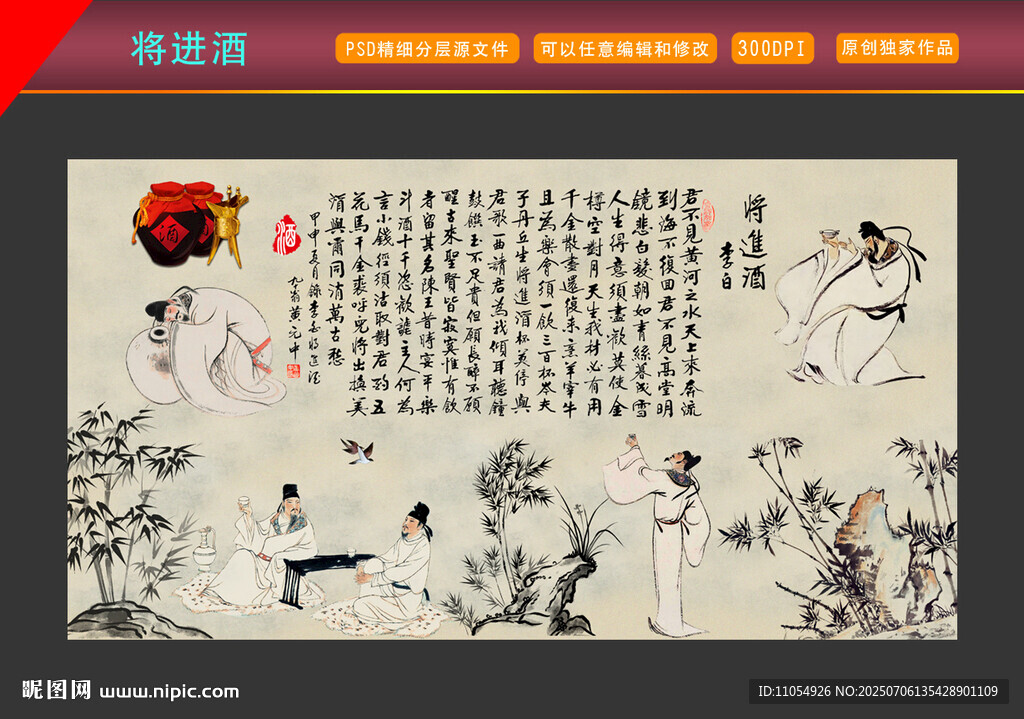 将进酒
PSD精细分层源文件
可以任意编辑和修改
300DPI
原创独家作品
將進酒
李白
君不見黃河之水天上來奔流
到海不復回君不見高堂明
鏡悲白髮朝如青絲暮成雪
人生得意須盡歡莫使金
樽空對月天生我材必有用
千金散盡還復來烹羊宰牛
且為樂會須一飲三百杯岑夫
子丹丘生將進酒杯莫停與
君歌一曲請君為我傾耳聽鐘
鼓饌玉不足貴但願長醉不願
醒古來聖賢皆寂寞惟有飲
者留其名陳王昔時宴平樂
斗酒十千恣歡謔主人何為
言少錢徑須沽取對君酌五
花馬千金裘呼兒將出換美
酒與爾同消萬古愁
甲申夏月錄李白將進酒
黃元中
酒
酒
昵图网 www.nipic.com
ID:11054926 NO:20250706135428901109